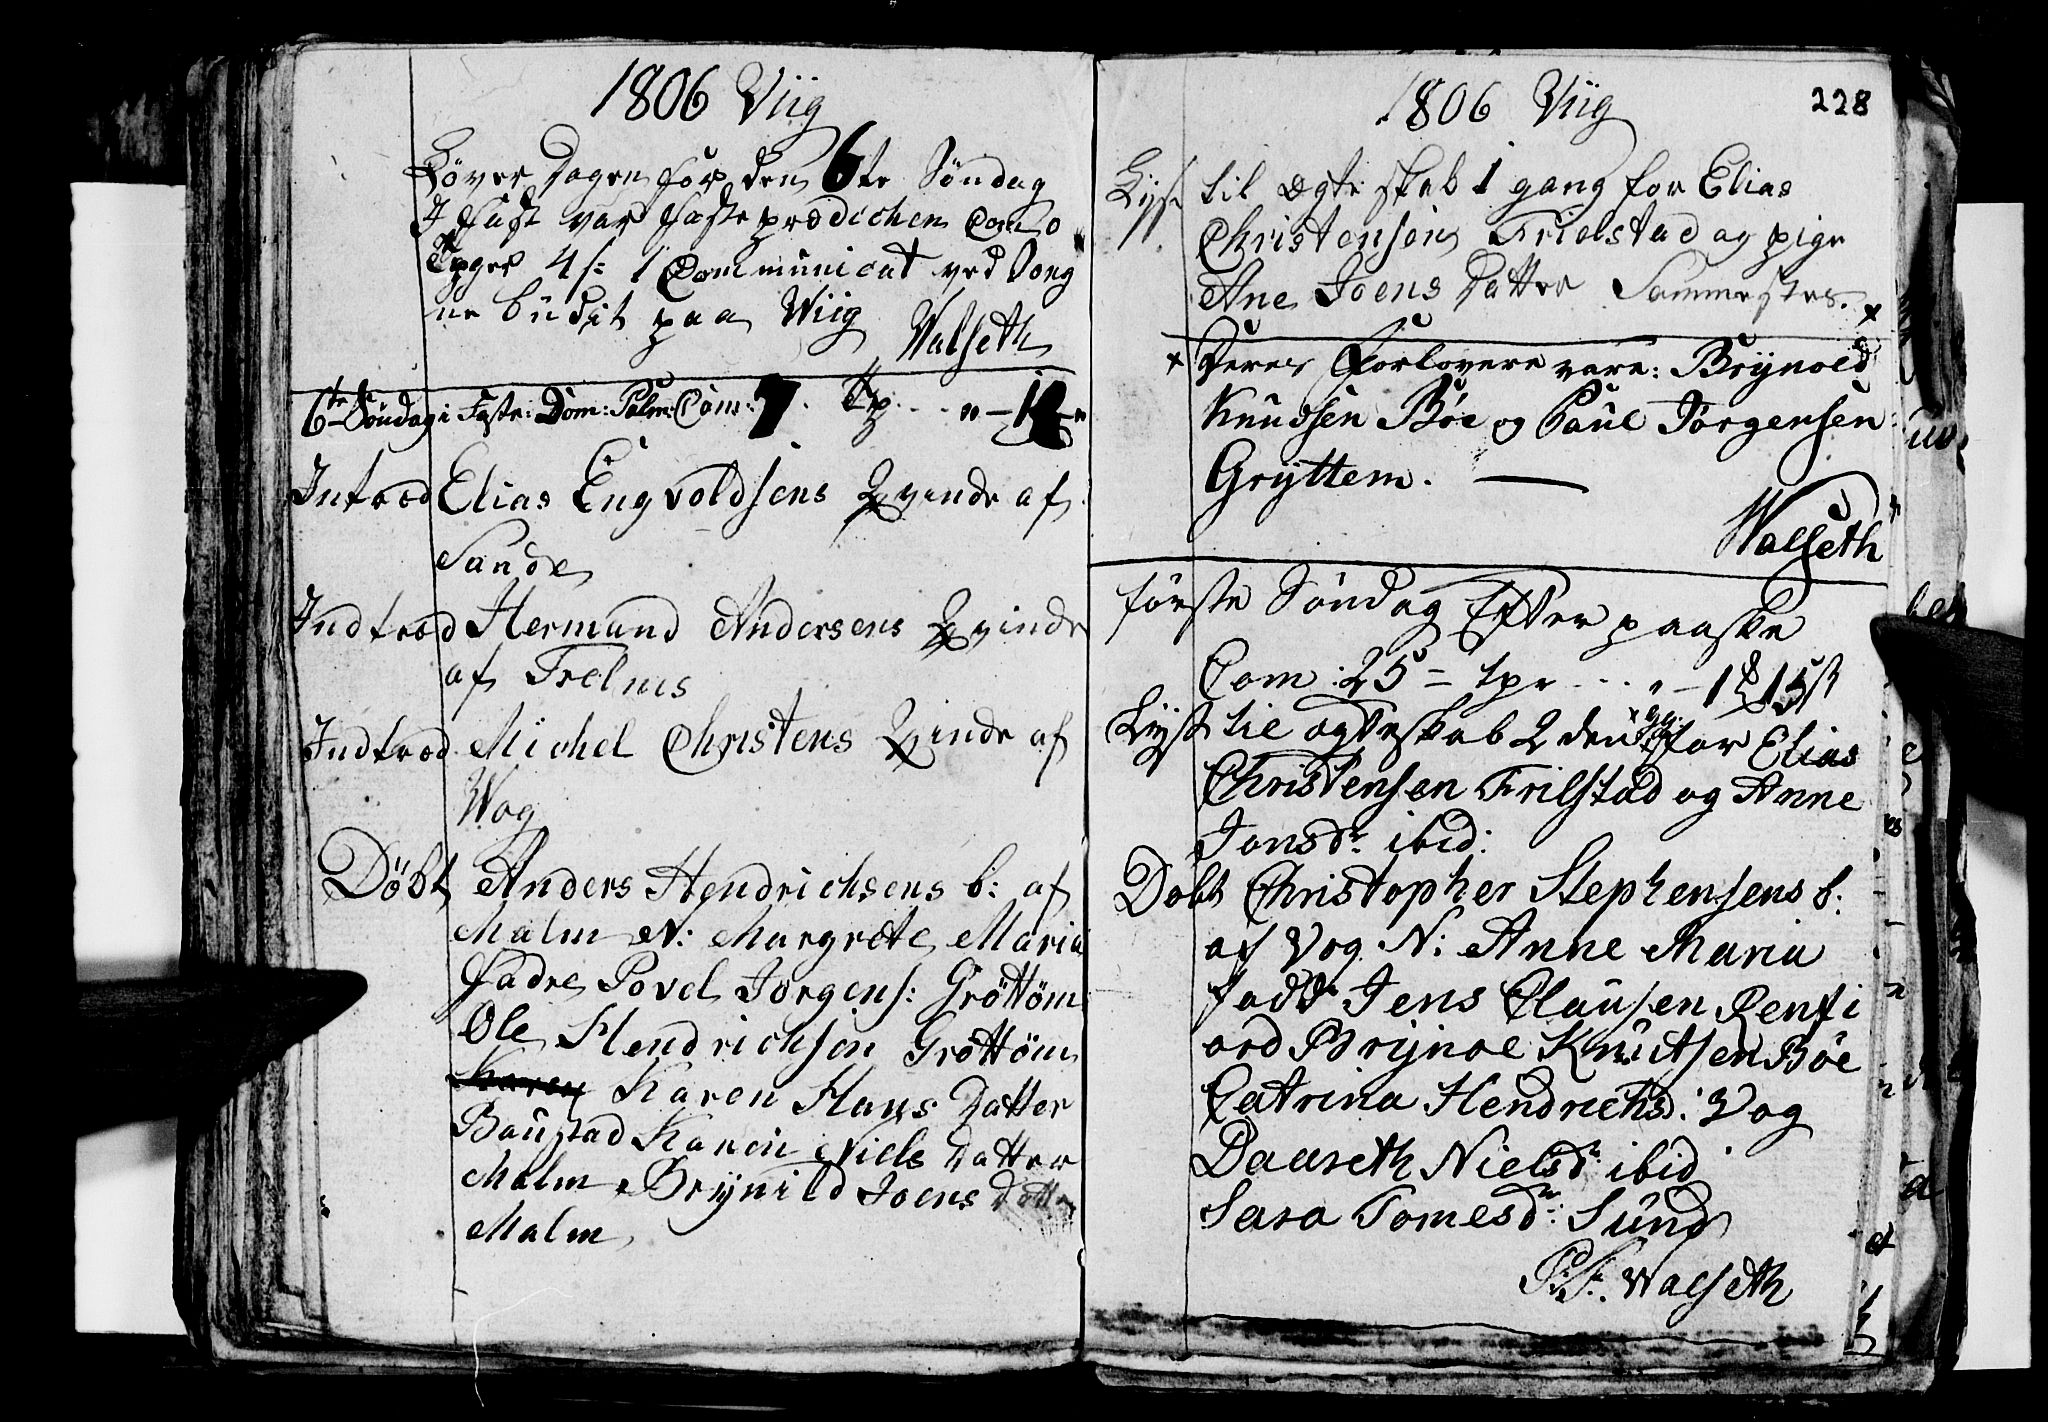 1806 Viig
Løver Dagen for den 6te Søndag
I fast var fasteprædichen Com 0
Tpger 4 s: 1 Communicat ved Song
ne budit paa Wiig
Walseth
6te Søndag i Faste: Dom: Palm: Com: 7. Tp
Introd Elias Engvoldsens Qvinde af
Sande
Indtrod Hermand Andersens Qvinde
af Frelnes
Indtrod Michel Christens Qvinde af
Wog
Døbt Anders Hendrichsens b: af
Malm N: Margrete Maria
fadre Povel Jørgens: Grøttøm
Ole Hendrichsen Grøttøm
Karen Karen Hans Datter
Baustad Karen Niels Datter
Malm Brynild Joens Datter
Malm
1806 Viig
228
Lyst til Ægte skab 1 gang for Elias
Christensen Frielstad og pige
Ane Joens Datter Sammestes. x
x Deres Forlovere vare: Brynold
Knudsen Bøe og Paul Jørgensen
Gryttem. —
Walseth
første Søndag Efter paaske
Com: 25 = tpr - 1 15 s
Lyst til ogteskab 2 den gg: for Elias
Christensen Frilstad og Anne
Jonsdr: ibid:
Dobt Christopher Stephensens b:
af Vog N: Anne Maria
fadd Jens Clausen Renfi
ord Brynoe Knutsen Bøe
Catrina Hendrichsd: Vog
Daareth Nielsdr: ibid
Sara Tomesdr: Sund
P: F: Walseth